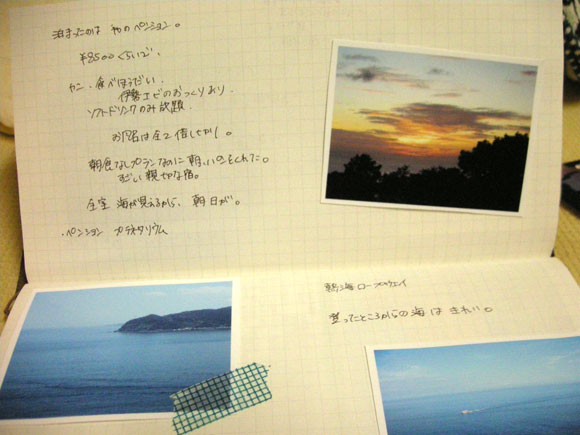 泊まったのは 初の ペンション。
¥8500 くらいで、
カニ・食べほうだい、
伊勢エビのおつくりあり、
ソフトドリンクのみ放題、
お風呂は全て貸しきり。
朝食なしプランなのに 朝、いっぱいくれた。
すごい 親切な宿。
全室 海が見えるから、朝日が。
・ペンション プラネタリウム
熱海ロープウェイ
登ったところからの海は きれい。